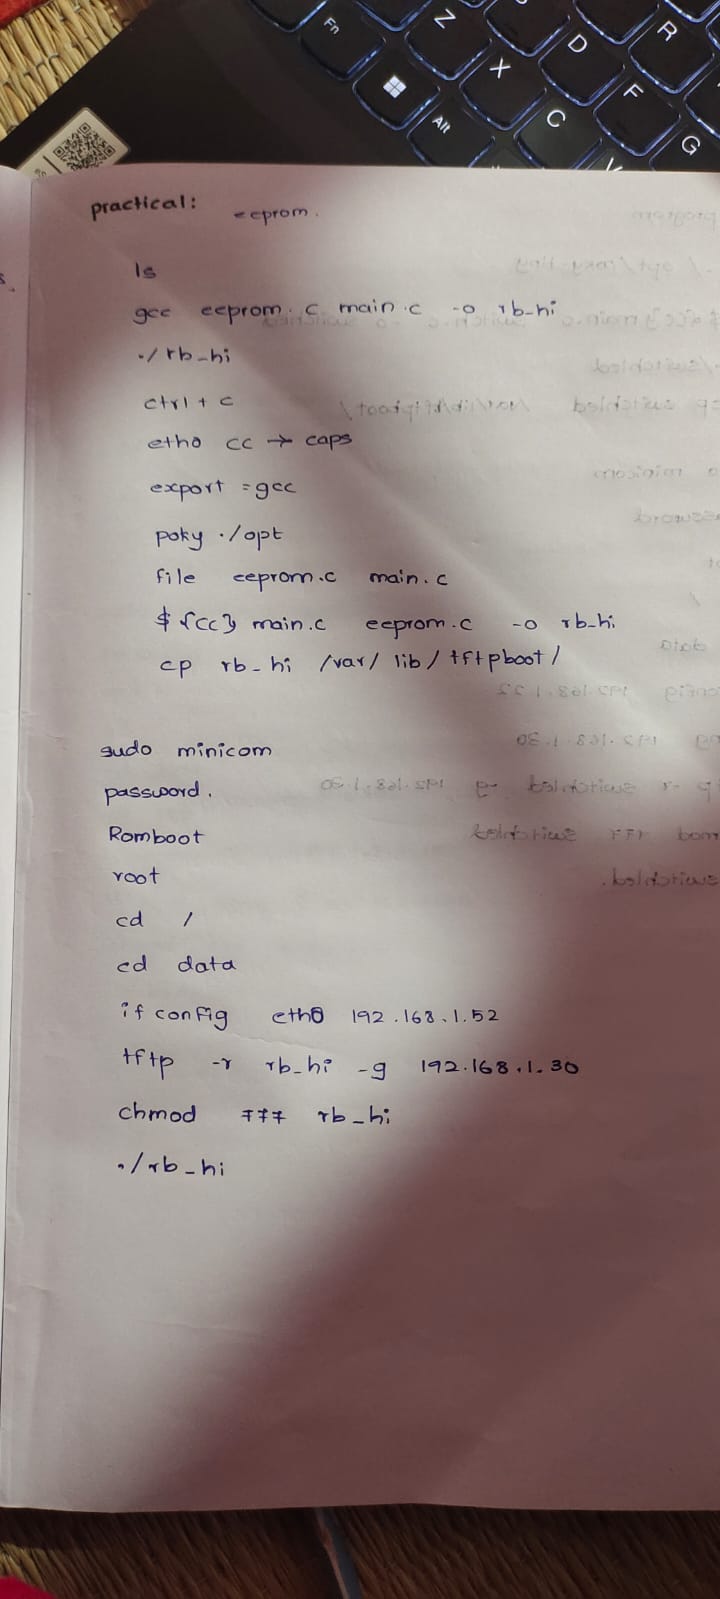 Fn
Z
D
R
X
F
Alt
C
G
V
practical: eeprom.
ls
gcc eeprom.c main.c -o rb-hi
./rb-hi
ctrl + c
etho cc → caps
export =gcc
poky ./opt
file eeprom.c main.c
${cc} main.c eeprom.c -o rb-hi
cp rb-hi /var/lib/tftpboot/
sudo minicom
password.
Romboot
root
cd /
cd data
if config eth0 192.168.1.52
tftp -r rb_hi -g 192.168.1.30
chmod 777 rb_hi
./rb_hi